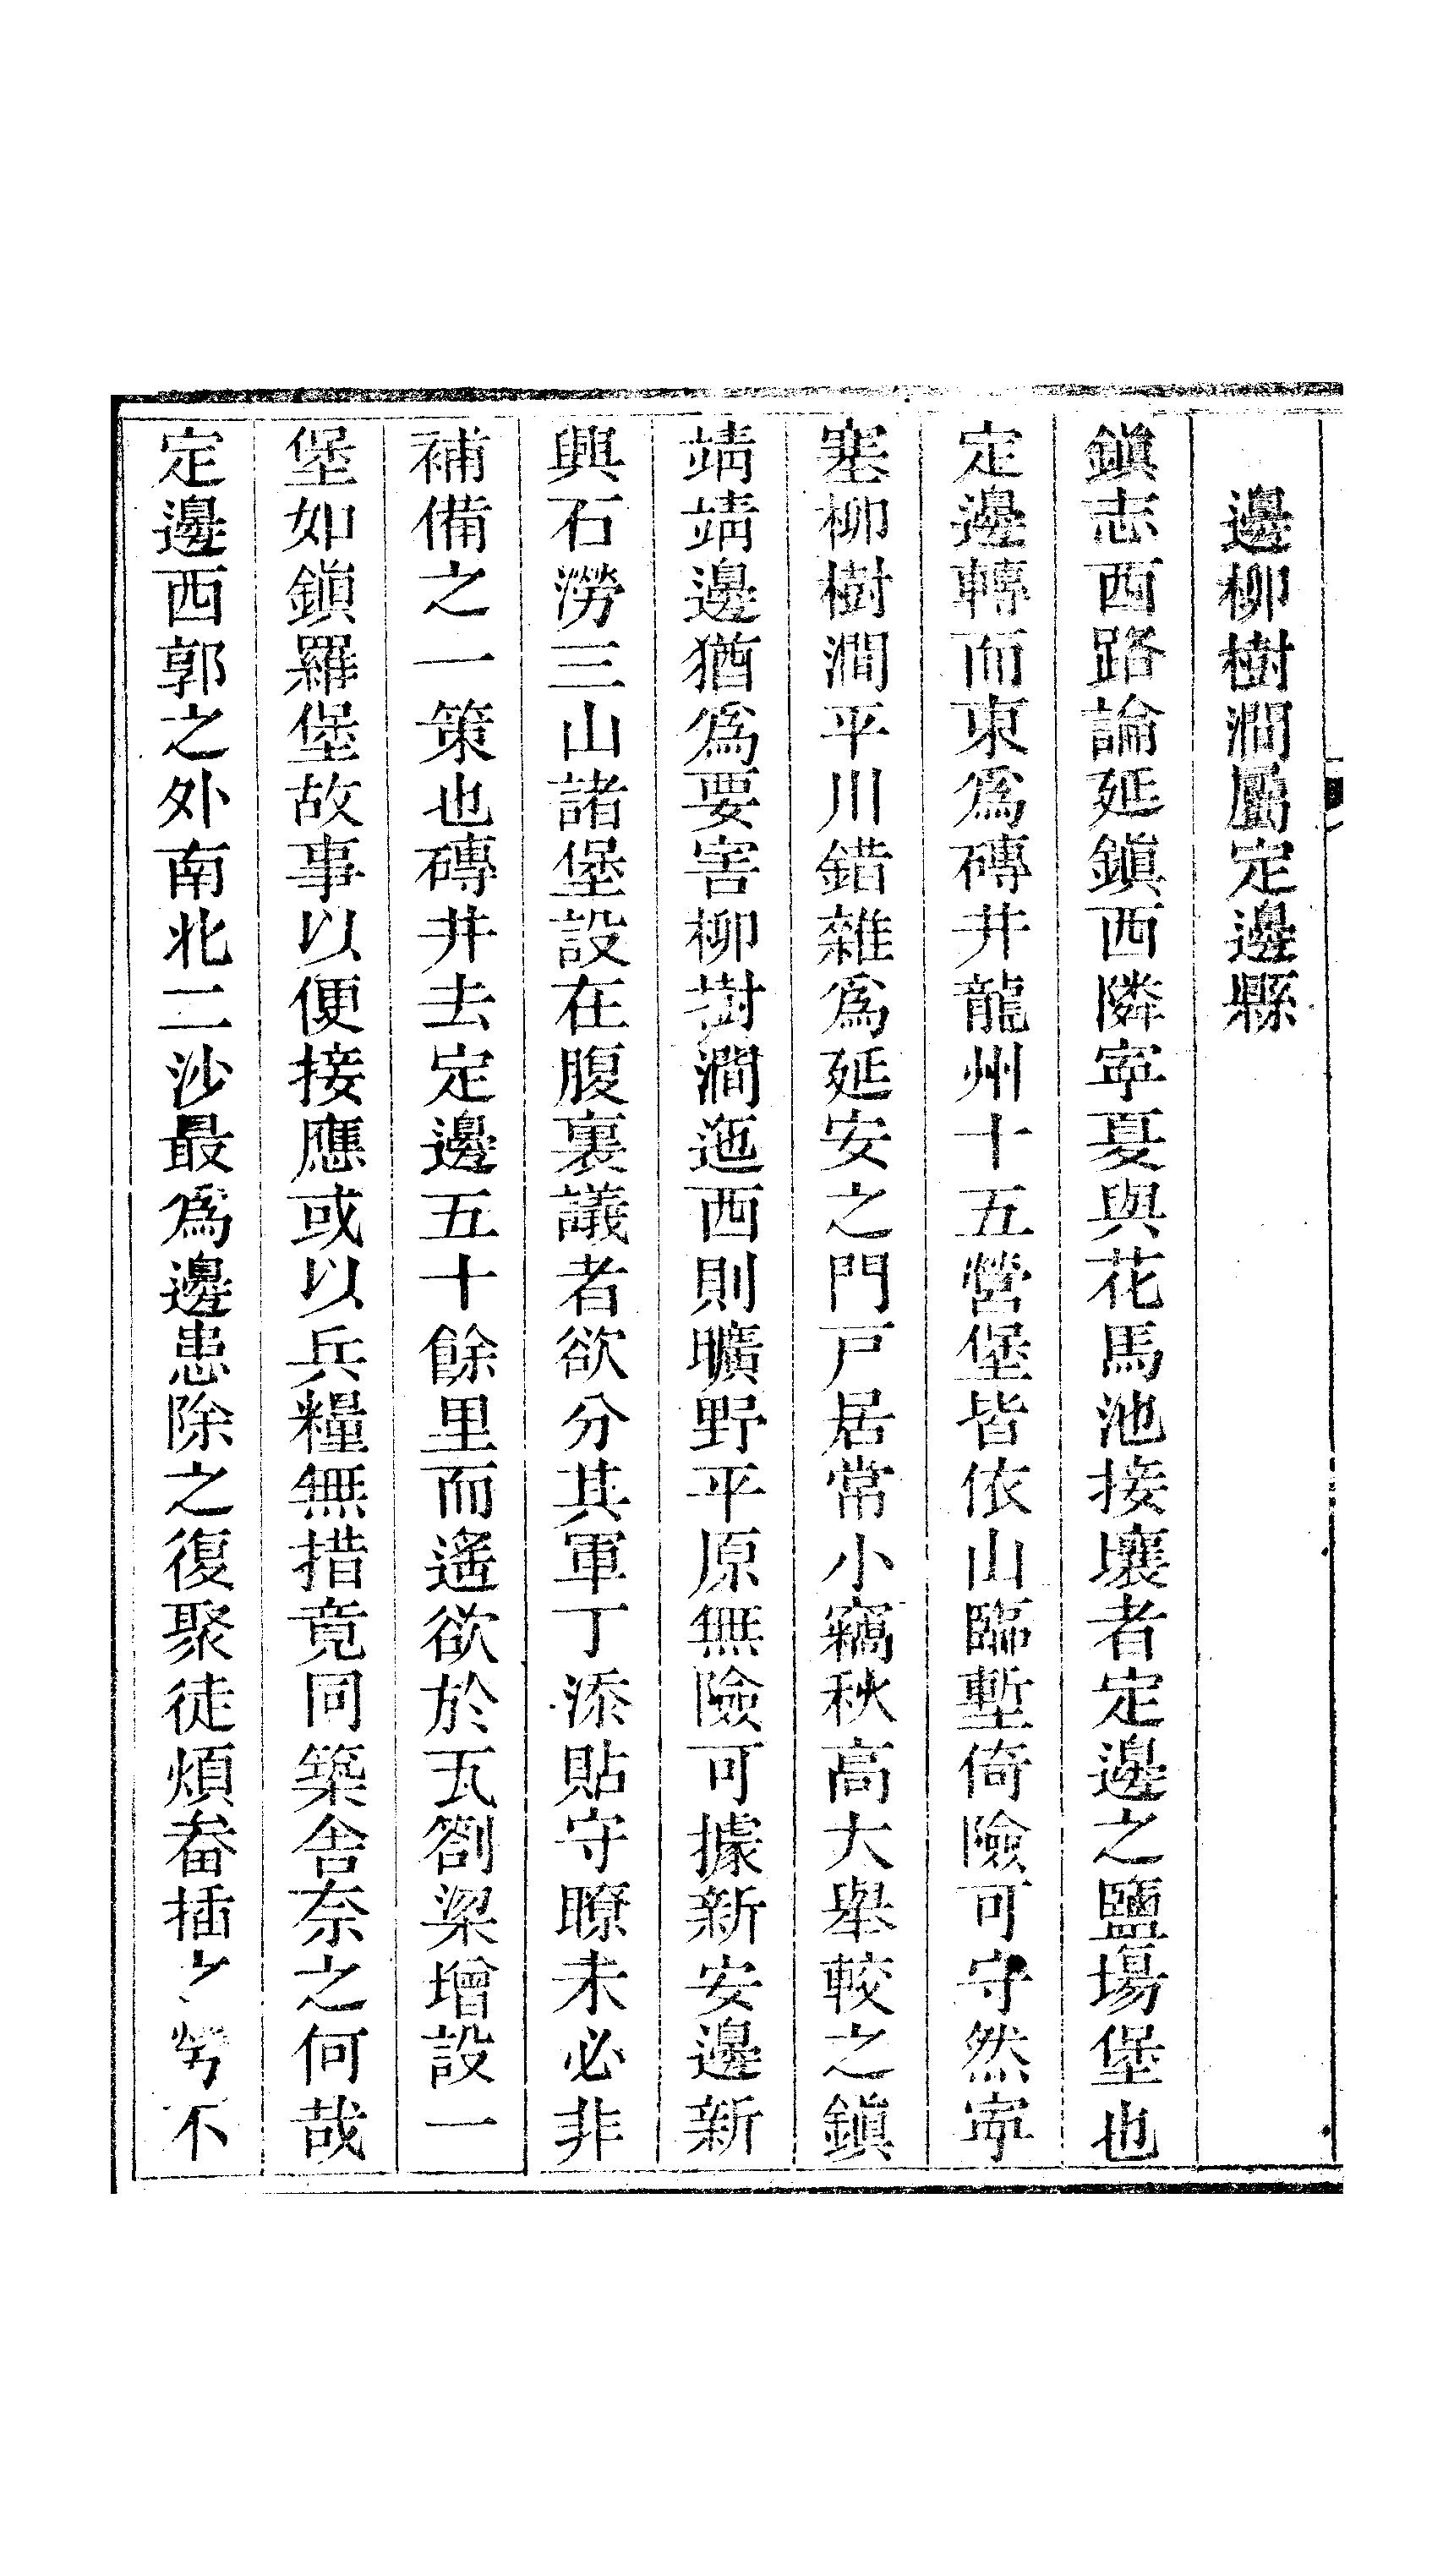 邊柳樹澗屬定邊縣
鎭志西路論延鎭西隣寕夏與花馬池接壤者定邊之鹽場堡也
定邊轉而東爲磚井龍州十五營堡皆依山臨塹倚險可守然寕
塞柳樹澗平川錯雜爲延安之門戸居常小竊秋高大舉較之鎭
靖靖邊猶爲要害柳樹澗迤西則曠野平原無險可據新安邊新
興石澇三山諸堡設在腹裏議者欲分其軍丁添貼守瞭未必非
補備之一策也磚井去定邊五十餘里而遙欲於瓦劄梁增設一
堡如鎭羅堡故事以便接應或以兵糧無措竟同築舍奈之何哉
定邊西郭之外南北二沙最爲邊患除之復聚徒煩畚插不